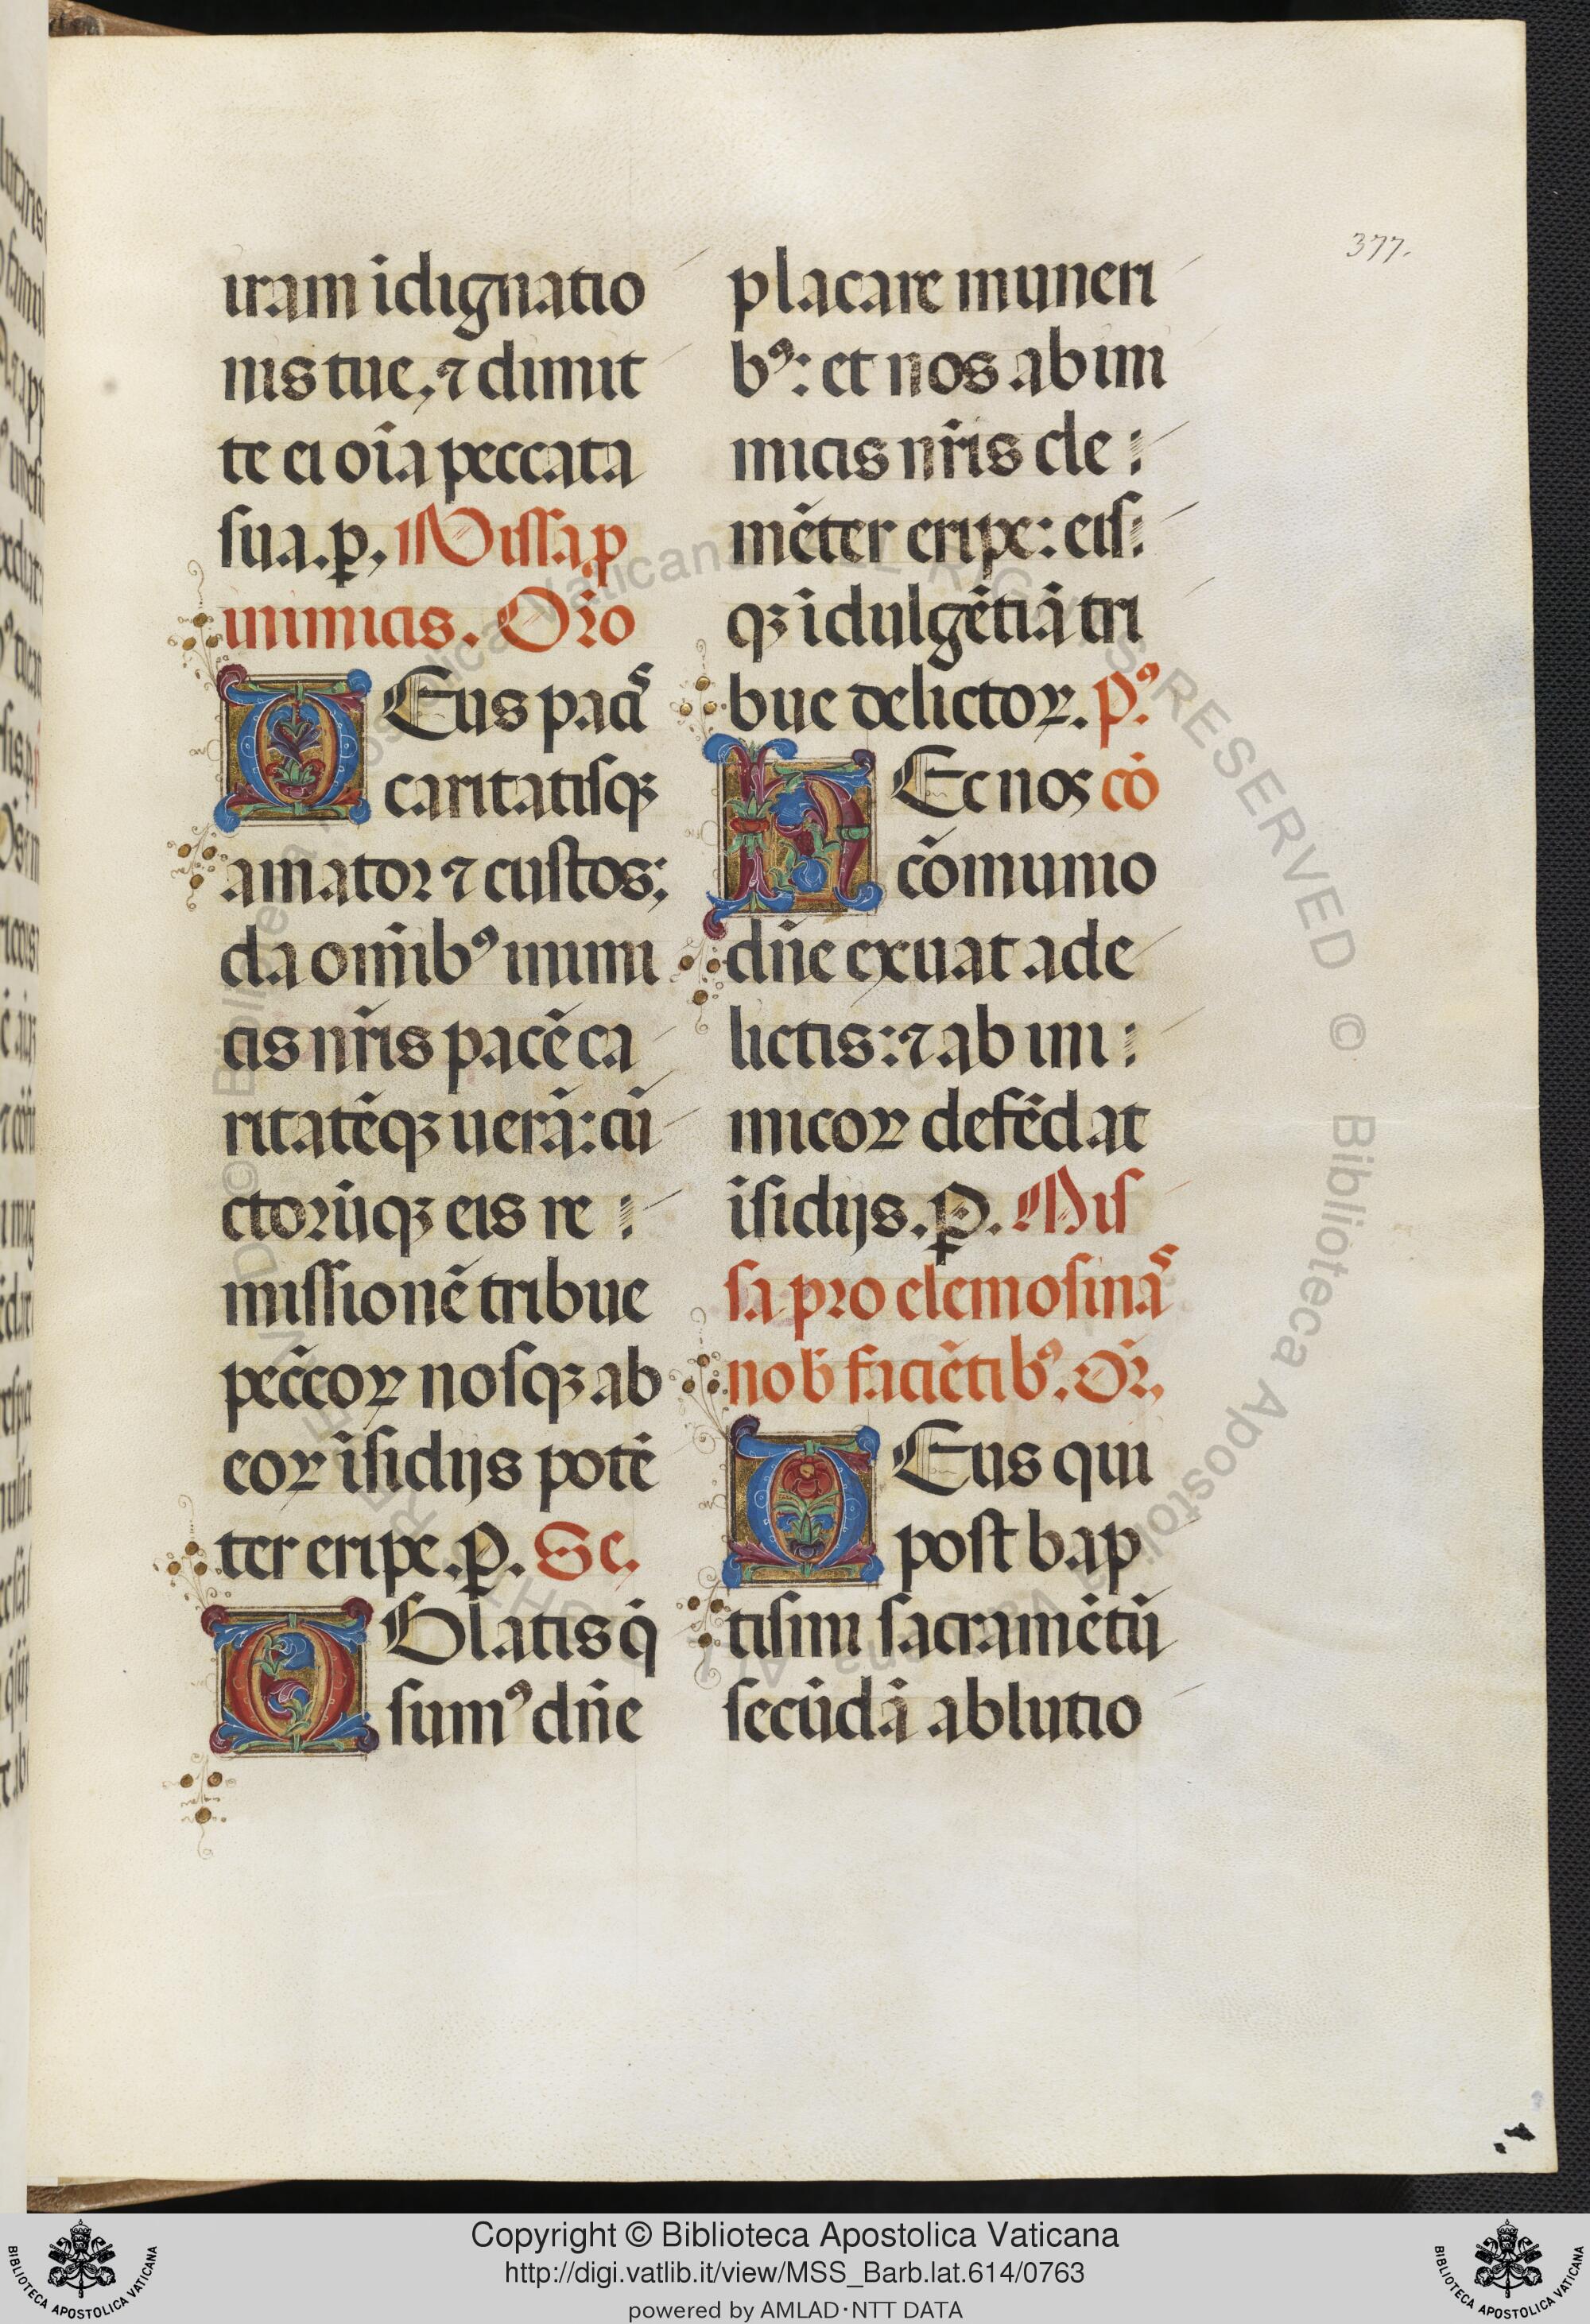 377.
iram īdignatio
nis tue, ⁊ dimit
te ei oīa peccata
sua. ꝑ, Missa ꝓ
inimicis. Or̄o
DEus paciˢ
caritatisqꝫ
amator ⁊ custos;
da om̄ibꝰ inimi
cis nr̄is pacē ca
ritatēqꝫ uerā: cū
ctorūqꝫ eis re
missionē tribue
pec̄cor̄ꝝ nosqꝫ ab
eoꝝ īsidijs potē
ter eripe. ꝑ. Se.
OBlatis q̄
sumꝰ dn̄e
placare muneri
bꝰ: et nos ab ini
micis nr̄is cle
mēter eripe: eis
qꝫ īdulgētiā tri
bue delictoꝝ. pꝰ
HEc nos cō
cōmunio
dn̄e exuat a de
lictis: ⁊ ab ini
micoꝝ defēdat
īsidijs. ꝑ. Mis
sa pro elemosināˢ
nob̄ faciētibꝰ. Or̄,
DEus qui
post bap
tismi sacramētū
secūdā ablutio
Copyright © Biblioteca Apostolica Vaticana
http://digi.vatlib.it/view/MSS_Barb.lat.614/0763
powered by AMLAD·NTT DATA
BIBLIOTECA APOSTOLICA VATICANA
BIBLIOTECA APOSTOLICA VATICANA